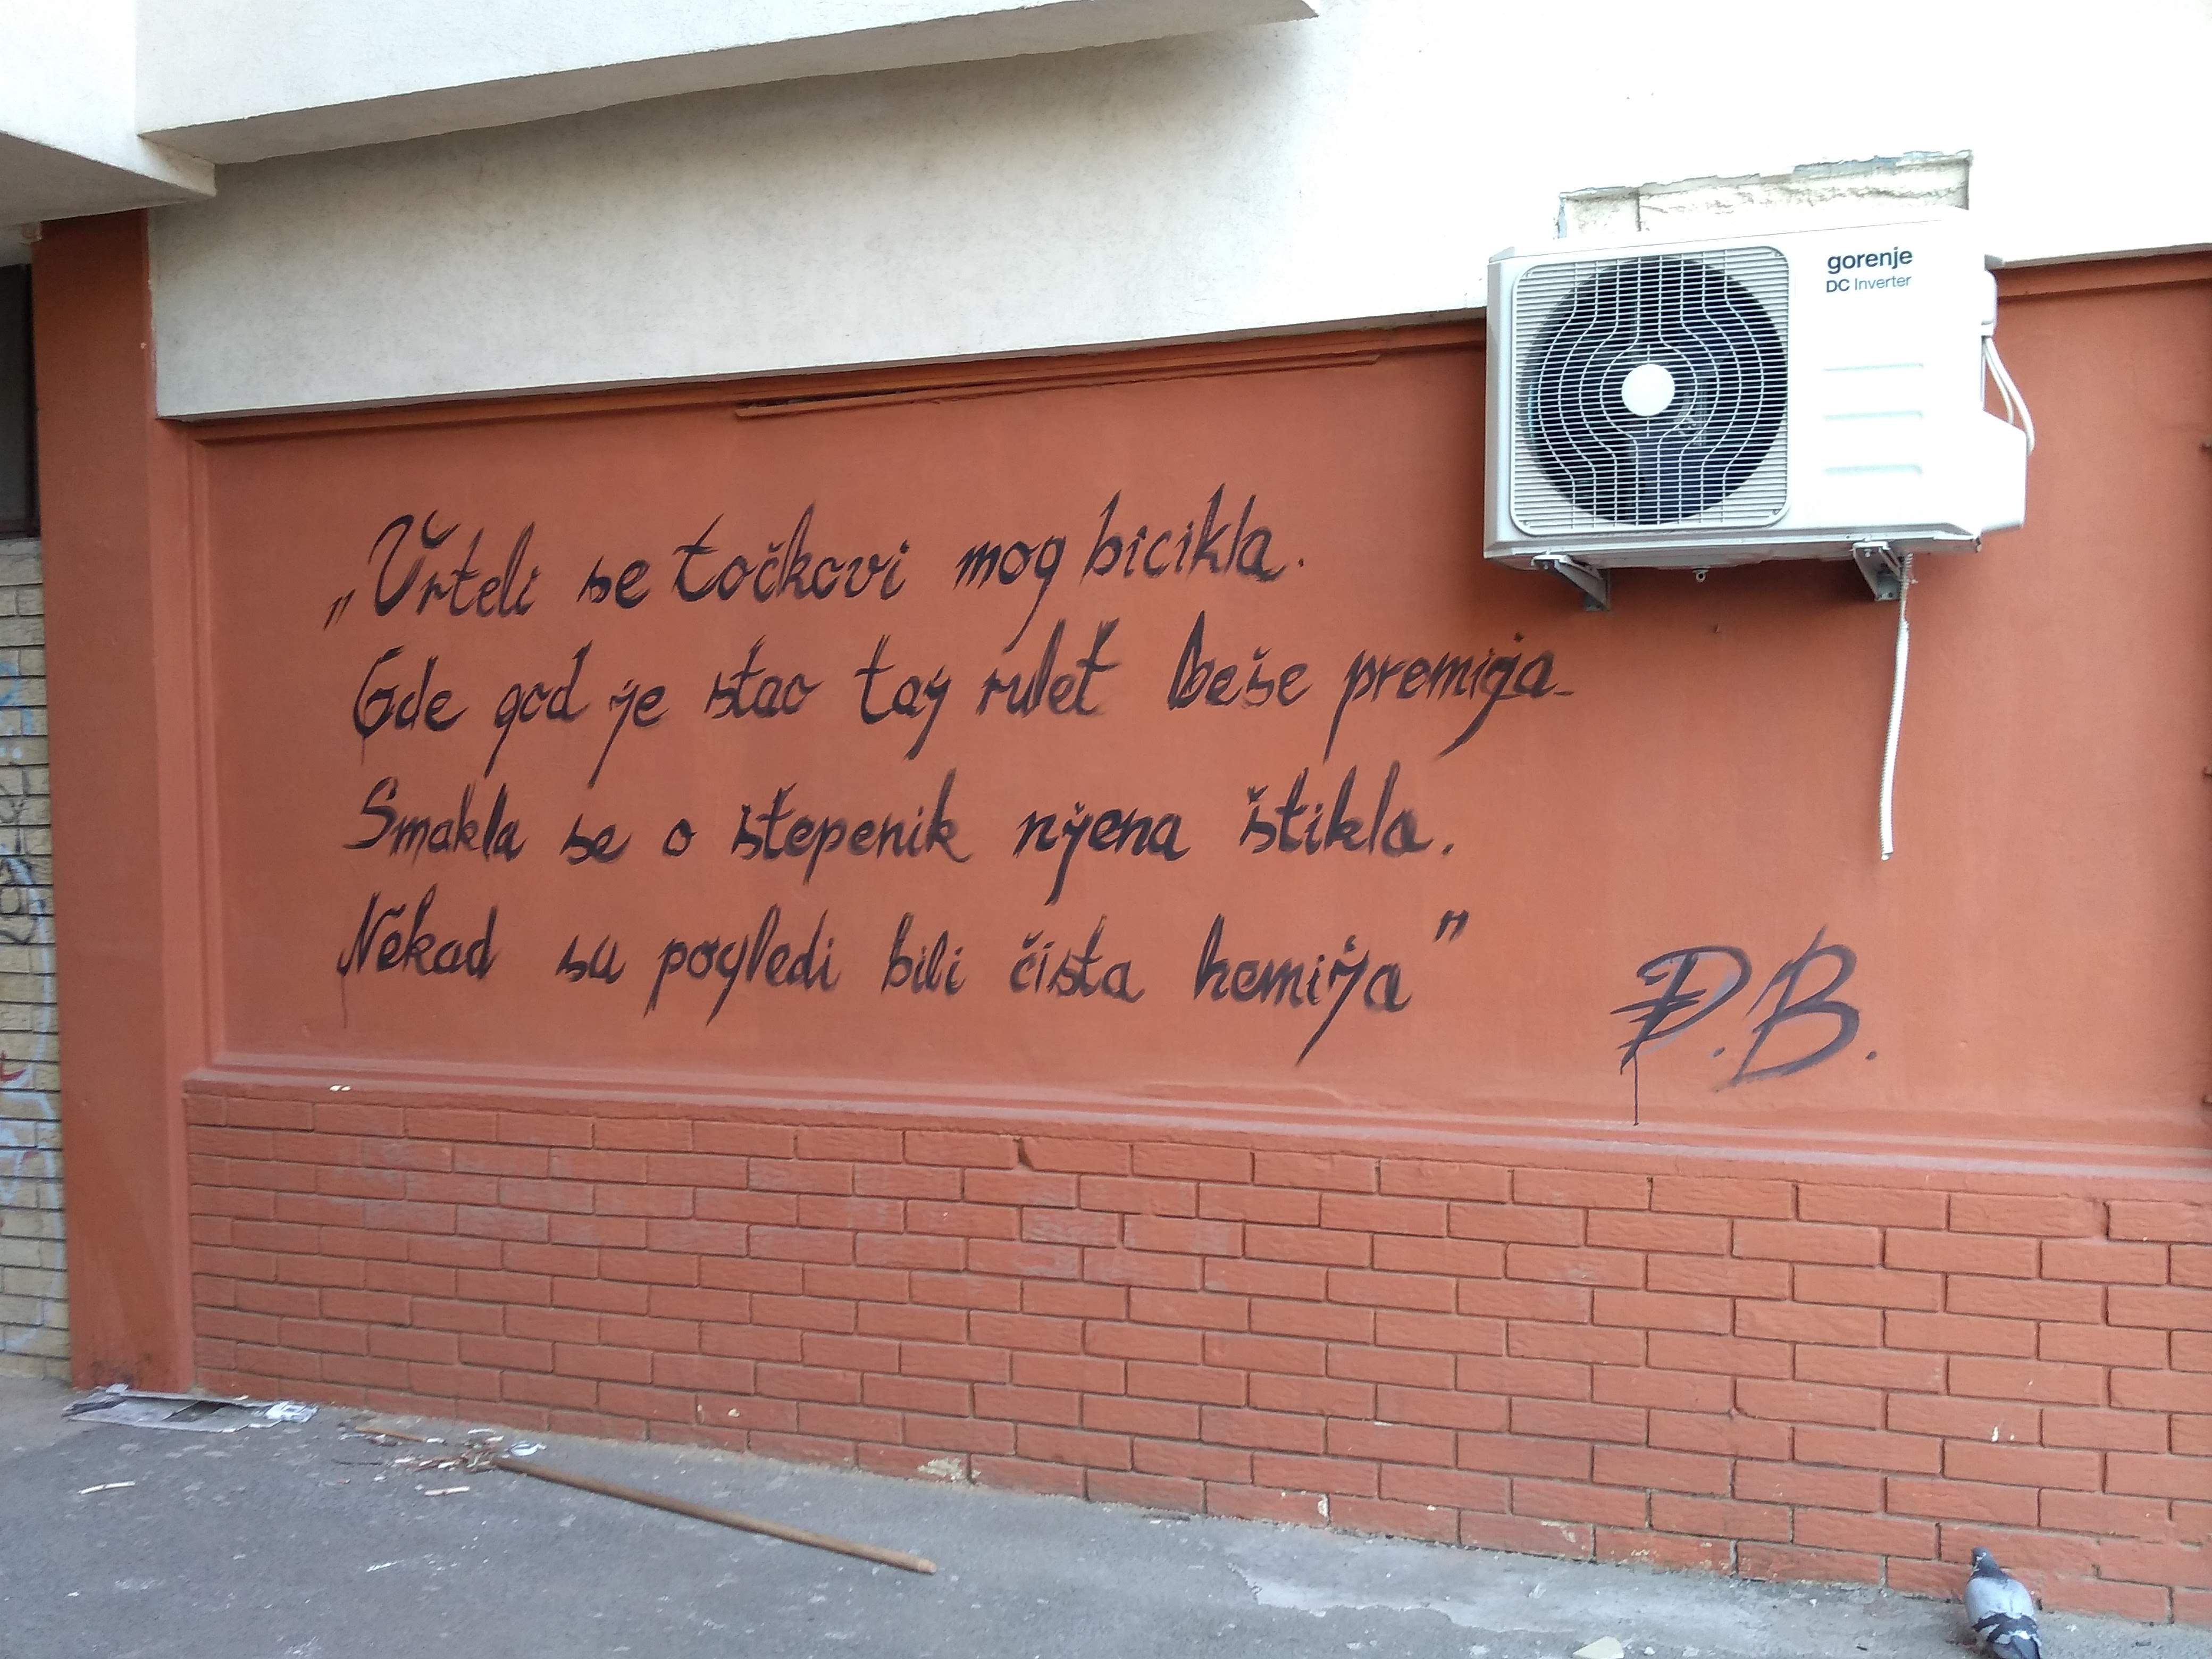 „Vrteli se točkovi mog bicikla.
Gde god je stao taj rulet beše premija.
Smakla se o stepenik njena štikla.
Nekad su pogledi bili čista hemija"
Đ.B.
gorenje
DC Inverter